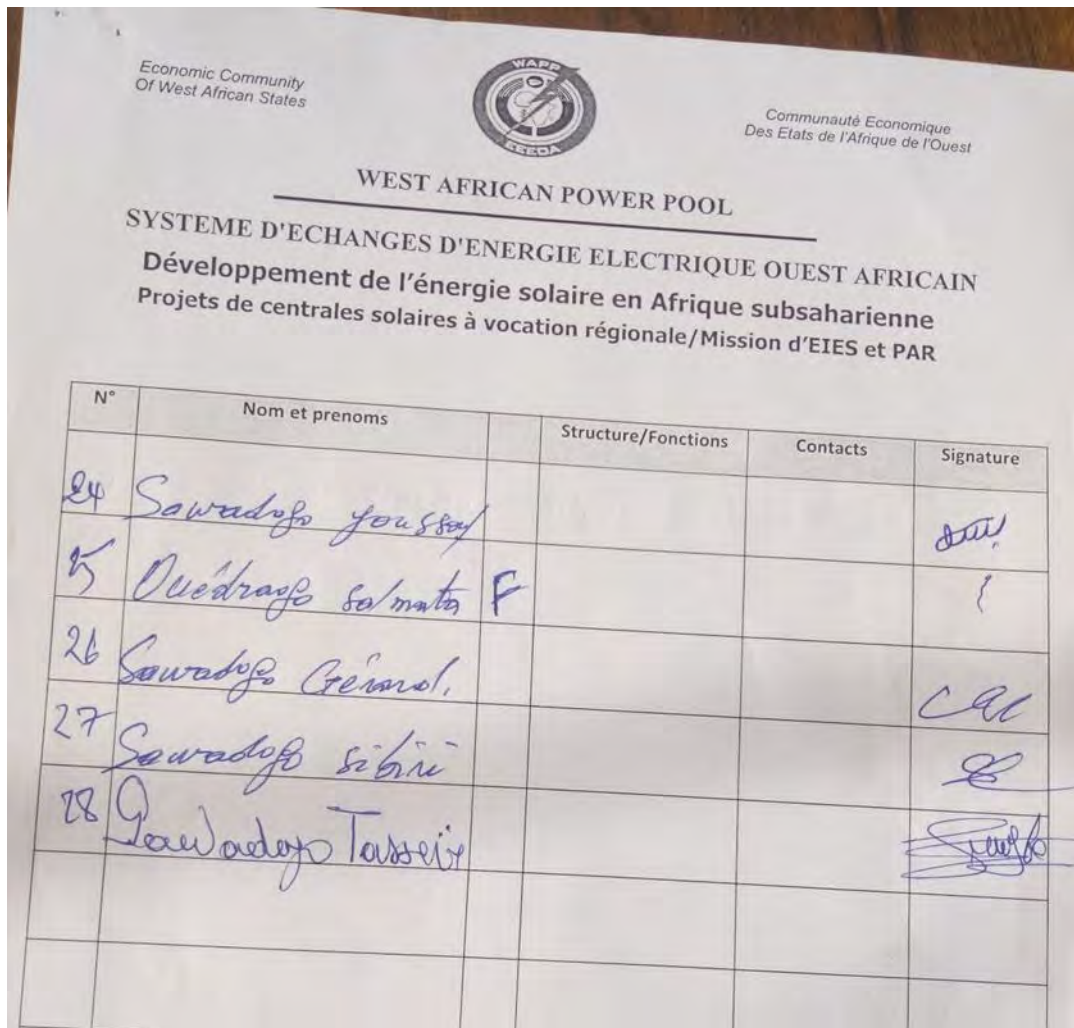 Economic Community
Of West African States
WAPP
EEEOA
Communauté Economique
Des Etats de l'Afrique de l'Ouest
WEST AFRICAN POWER POOL
SYSTEME D'ECHANGES D'ENERGIE ELECTRIQUE OUEST AFRICAIN
Développement de l'énergie solaire en Afrique subsaharienne
Projets de centrales solaires à vocation régionale/Mission d'EIES et PAR
N° Nom et prenoms Structure/Fonctions Contacts Signature
24 Sawadogo Youssouf
25 Ouédraogo Salmata F
26 Sawadogo Gérard.
27 Sawadogo sibiri
28 Sawadogo Tasseir